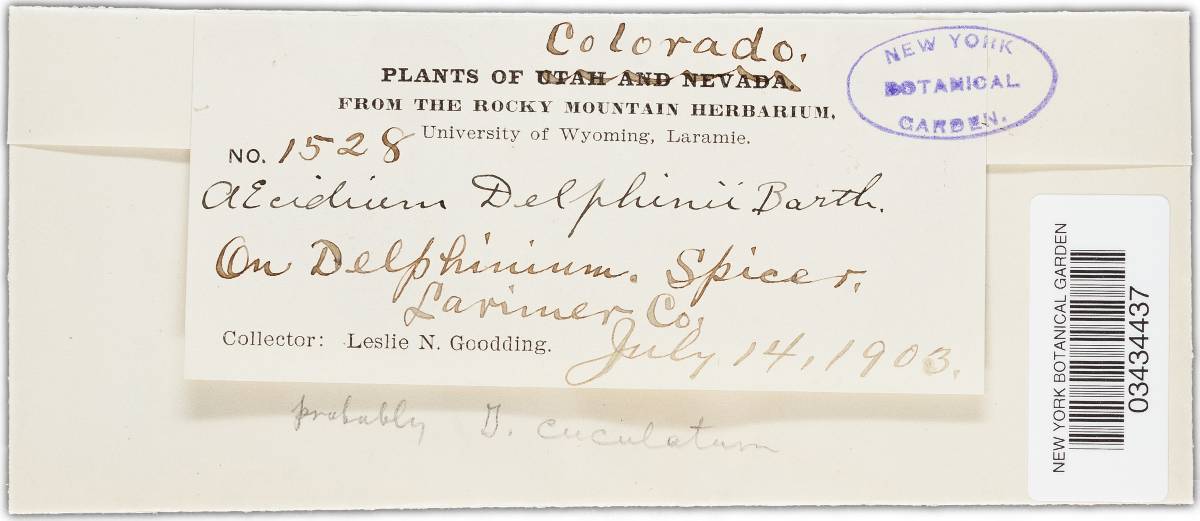 Colorado.
PLANTS OF UTAH AND NEVADA.
FROM THE ROCKY MOUNTAIN HERBARIUM,
University of Wyoming, Laramie.
NO. 1528
AEcidium Delphinii Barth.
On Delphinium. Spicer,
Larimer Co.
Collector: Leslie N. Goodding.
July 14, 1903.
probably D. cuculatum
NEW YORK
BOTANICAL
GARDEN.
NEW YORK BOTANICAL GARDEN
03434437